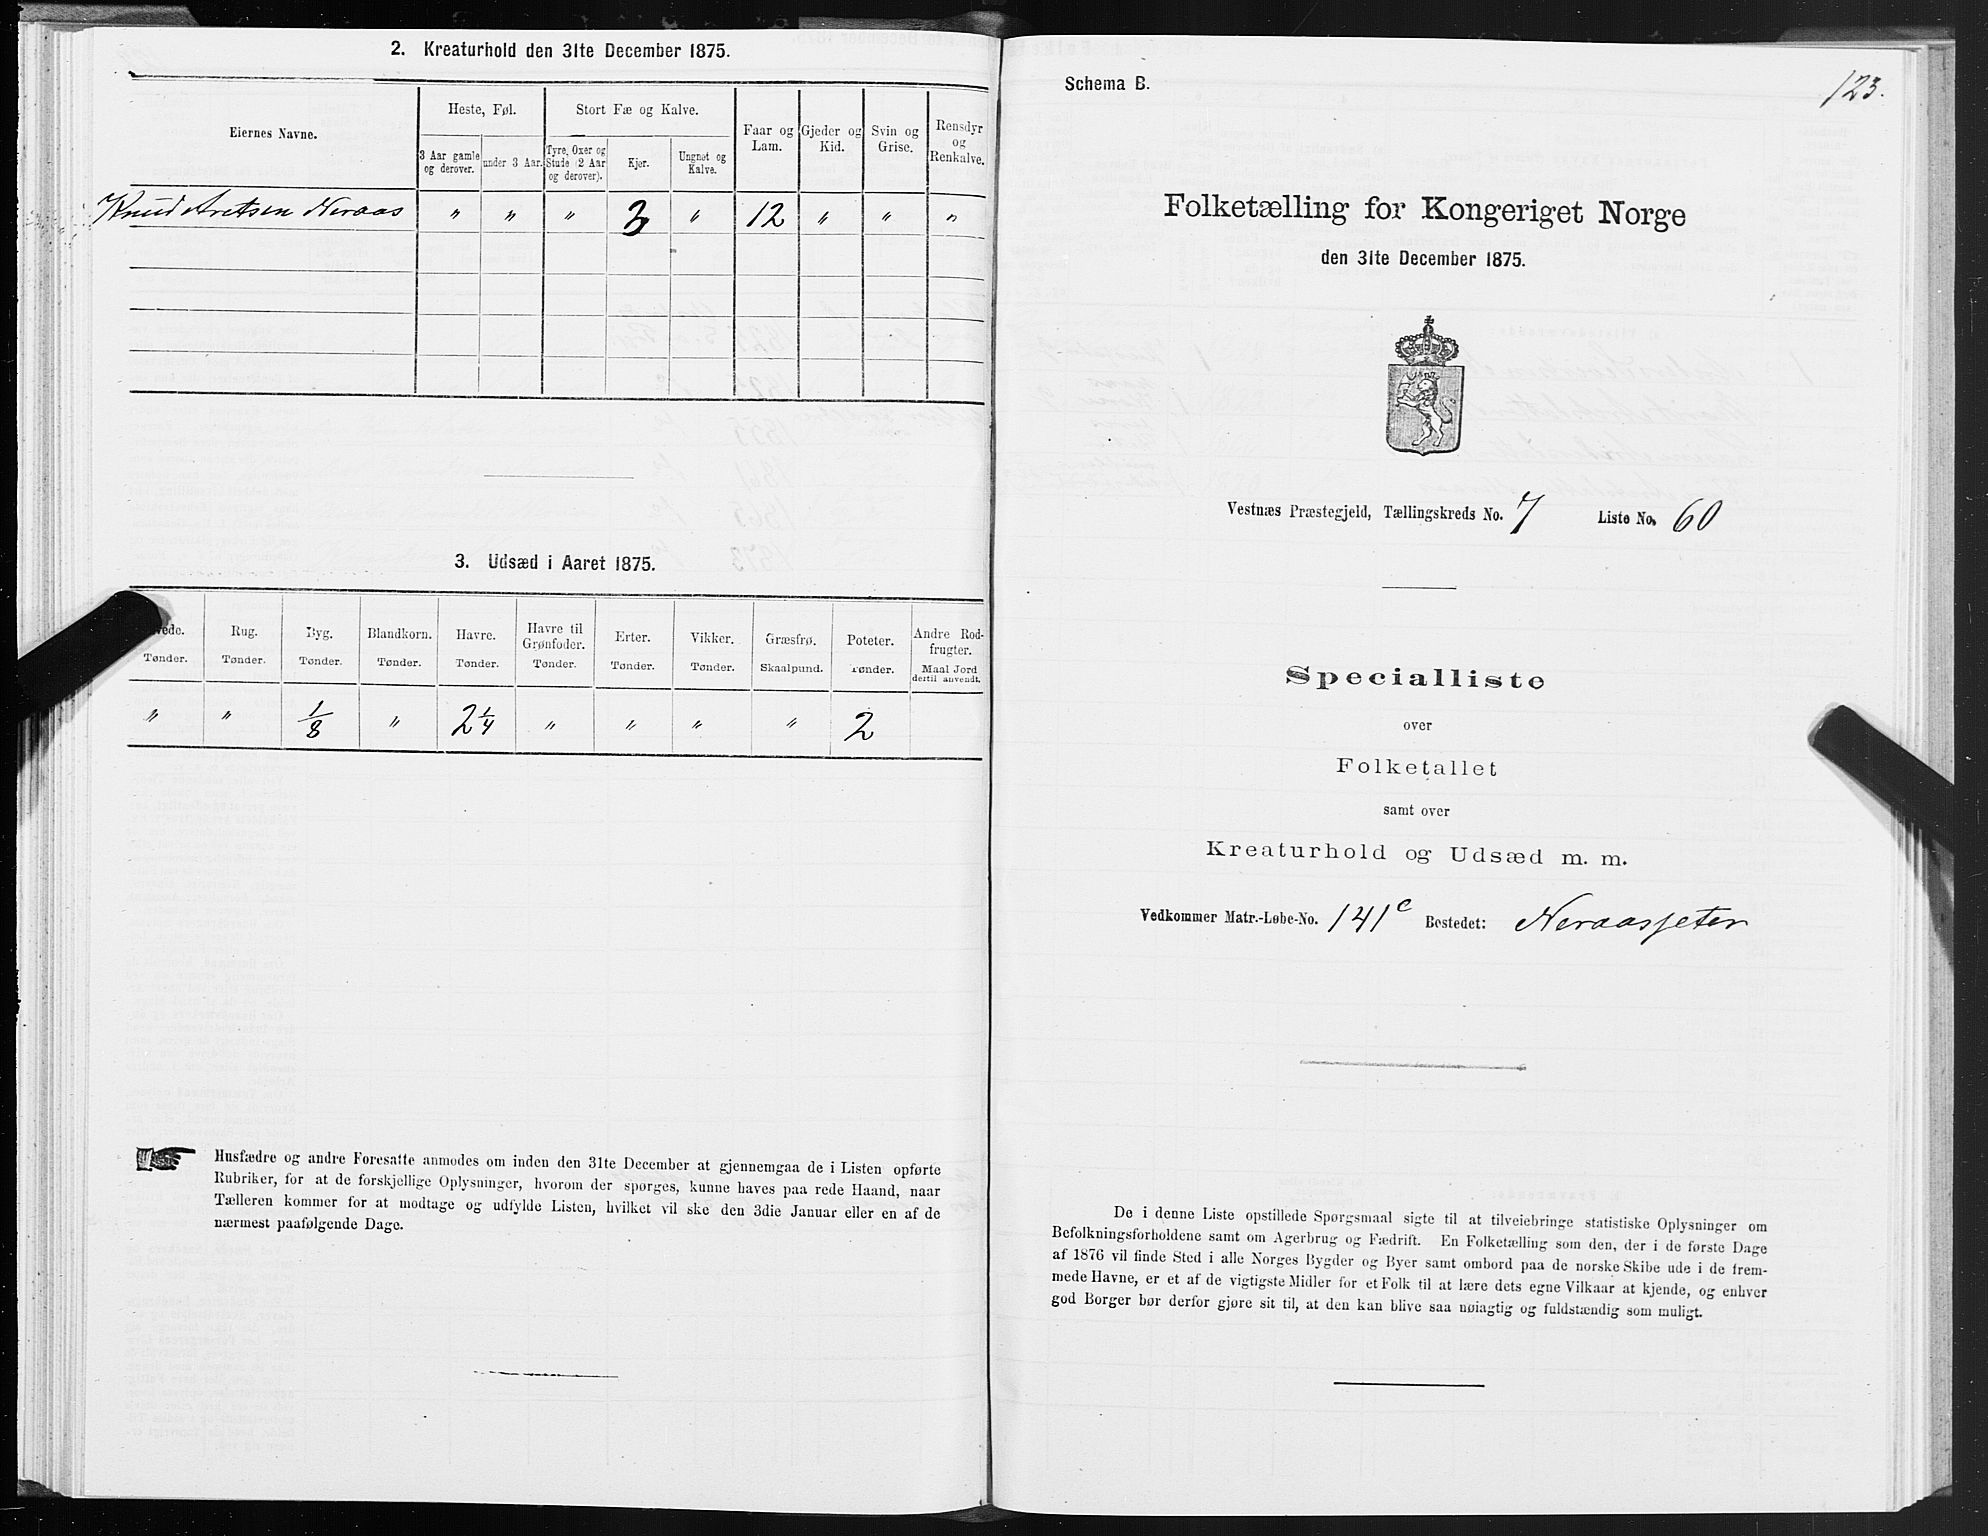 2. Kreaturhold den 31te December 1875.
Eiernes Navne.
Heste, Føl.
Stort Fæ og Kalve.
Faar og Lam.
Gjeder og Kid.
Svin og Grise.
Rensdyr og Renkalve.
3 Aar gamle og derover.
under 3 Aar.
Tyre, Oxer og Stude (2 Aar og derover).
Kjør.
Ungnøt og Kalve.
Knud Aretsen Neraas " " " 3 " 12 " " "
3. Udsæd i Aaret 1875.
Rug. Byg. Blandkorn. Havre. Havre til Grønfoder. Erter. Vikker. Græsfrø. Poteter. Andre Rodfrugter.
Tønder. Tønder. Tønder. Tønder. Tønder. Tønder. Tønder. Tønder. Skaalpund. Tønder. Maal Jord dertil anvendt.
" " 1/8 " 2 1/4 " " " " 2
Husfædre og andre Foresatte anmodes om inden den 31te December at gjennemgaa de i Listen opførte
Rubriker, for at de forskjellige Oplysninger, hvorom der spørges, kunne haves paa rede Haand, naar
Tælleren kommer for at modtage og udfylde Listen, hvilket vil ske den 3die Januar eller en af de
nærmest paafølgende Dage.
Schema B.
123.
Folketælling for Kongeriget Norge
den 31te December 1875.
Vestnæs Præstegjeld, Tællingskreds No. 7 Liste No. 60
Specialliste
over
Folketallet
samt over
Kreaturhold og Udsæd m. m.
Vedkommer Matr.-Løbe-No. 141c Bostedet: Neraasseter
De i denne Liste opstillede Spørgsmaal sigte til at tilveiebringe statistiske Oplysninger om
Befolkningsforholdene samt om Agerbrug og Fædrift. En Folketælling som den, der i de første Dage
af 1876 vil finde Sted i alle Norges Bygder og Byer samt ombord paa de norske Skibe ude i de frem-
mede Havne, er et af de vigtigste Midler for et Folk til at lære dets egne Vilkaar at kjende, og enhver
god Borger bør derfor gjøre sit til, at den kan blive saa nøiagtig og fuldstændig som muligt.